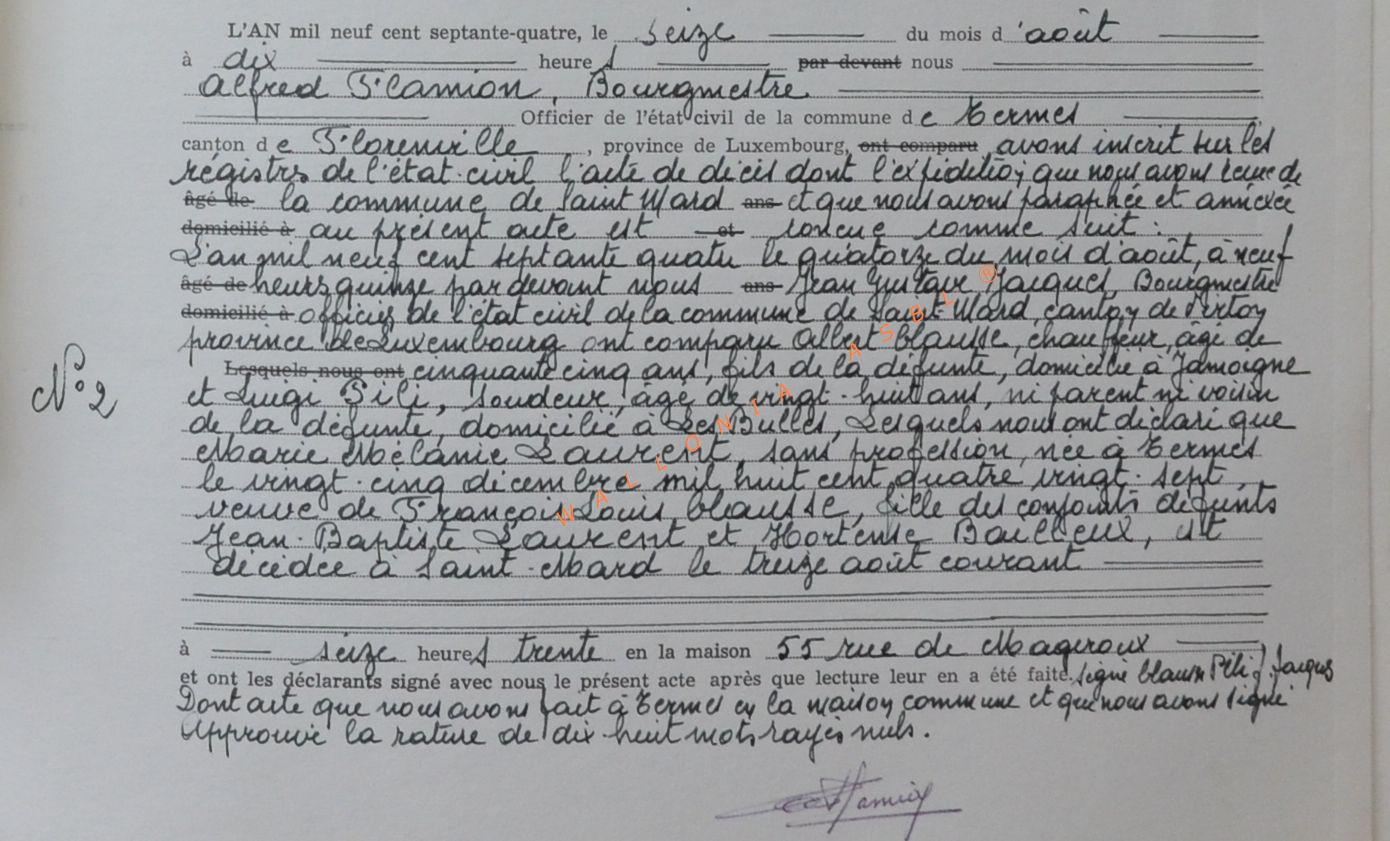 L'AN mil neuf cent septante-quatre, le seize du mois d'août
à dix heures par devant nous
Alfred Flamion, Bourgmestre
Officier de l'état civil de la commune de Termes
canton de Florenville, province de Luxembourg, ont comparu avons inscrit sur les
régistres de l'état-civil l'acte de décès dont l'expédition que nous avons reçue de
âgé de la commune de Saint Mard ans et que nous avons paraphée et annexée
domicilié à au présent acte est et conçue comme suit :
L'an mil neuf cent septante quatre le quatorze du mois d'août, à neuf
âgé de heures quinze par devant nous ans Jean Gustave Jacques, Bourgmestre
domicilié à officier de l'état civil de la commune de Saint-Mard, canton de Virton
province de Luxembourg ont comparu Albert Clausse, chauffeur, âgé de
Lesquels nous ont cinquante cinq ans, fils de la défunte, domicilié à Jamoigne
N° 2
et Luigi Pili, soudeur, âgé de vingt-huit ans, ni parent ni voisin
de la défunte, domicilié à Les Bulles, Lesquels nous ont déclaré que
Marie Mélanie Laurent, sans profession, née à Termes
le vingt-cinq décembre mil huit cent quatre vingt-sept,
veuve de François Louis Clausse, fille des conjoints défunts
Jean-Baptiste Laurent et Hortense Bailleux, est
décédée à Saint-Mard le treize août courant
à seize heures trente en la maison 55 rue de Mageroux
et ont les déclarants signé avec nous le présent acte après que lecture leur en a été faite. Signé Clausse Pili J. Jacques
Dont acte que nous avons fait à Termes en la maison commune et que nous avons signé
Approuvé la rature de dix-huit mots rayés nuls.
WALLONIA ASBL ®